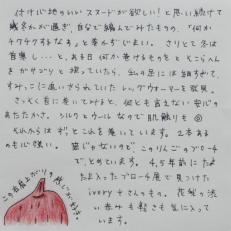 付け心地のいいスヌードが欲しい！と思い続けて
幾冬かが過ぎ、自分で編んでみたものの、「何か
チクチクするなぁ」と巻かずじまい。さりとて冬は
首寒し…と、ある日何か巻けるものをとそこらへん
をガサゴソと探っていたら、私の足には細すぎて、
すみっこに追いやられていたレッグウォーマーを発見。
さっそく首に巻いてみると、何とも言えない安心の
あたたかさ。シルクとウールなので肌触りも◎
それからはずっとこれを巻いています。2本ある
のも心強い。筒じゃないので、このりんごのブローチ
でとめています。4,5年前にたま
たま入ったブローチ展で見つけた
ivory+さんのもの。花梨の渋
い赤みも髪さも気に入って
います。
この右肩上がりの感じが好き。